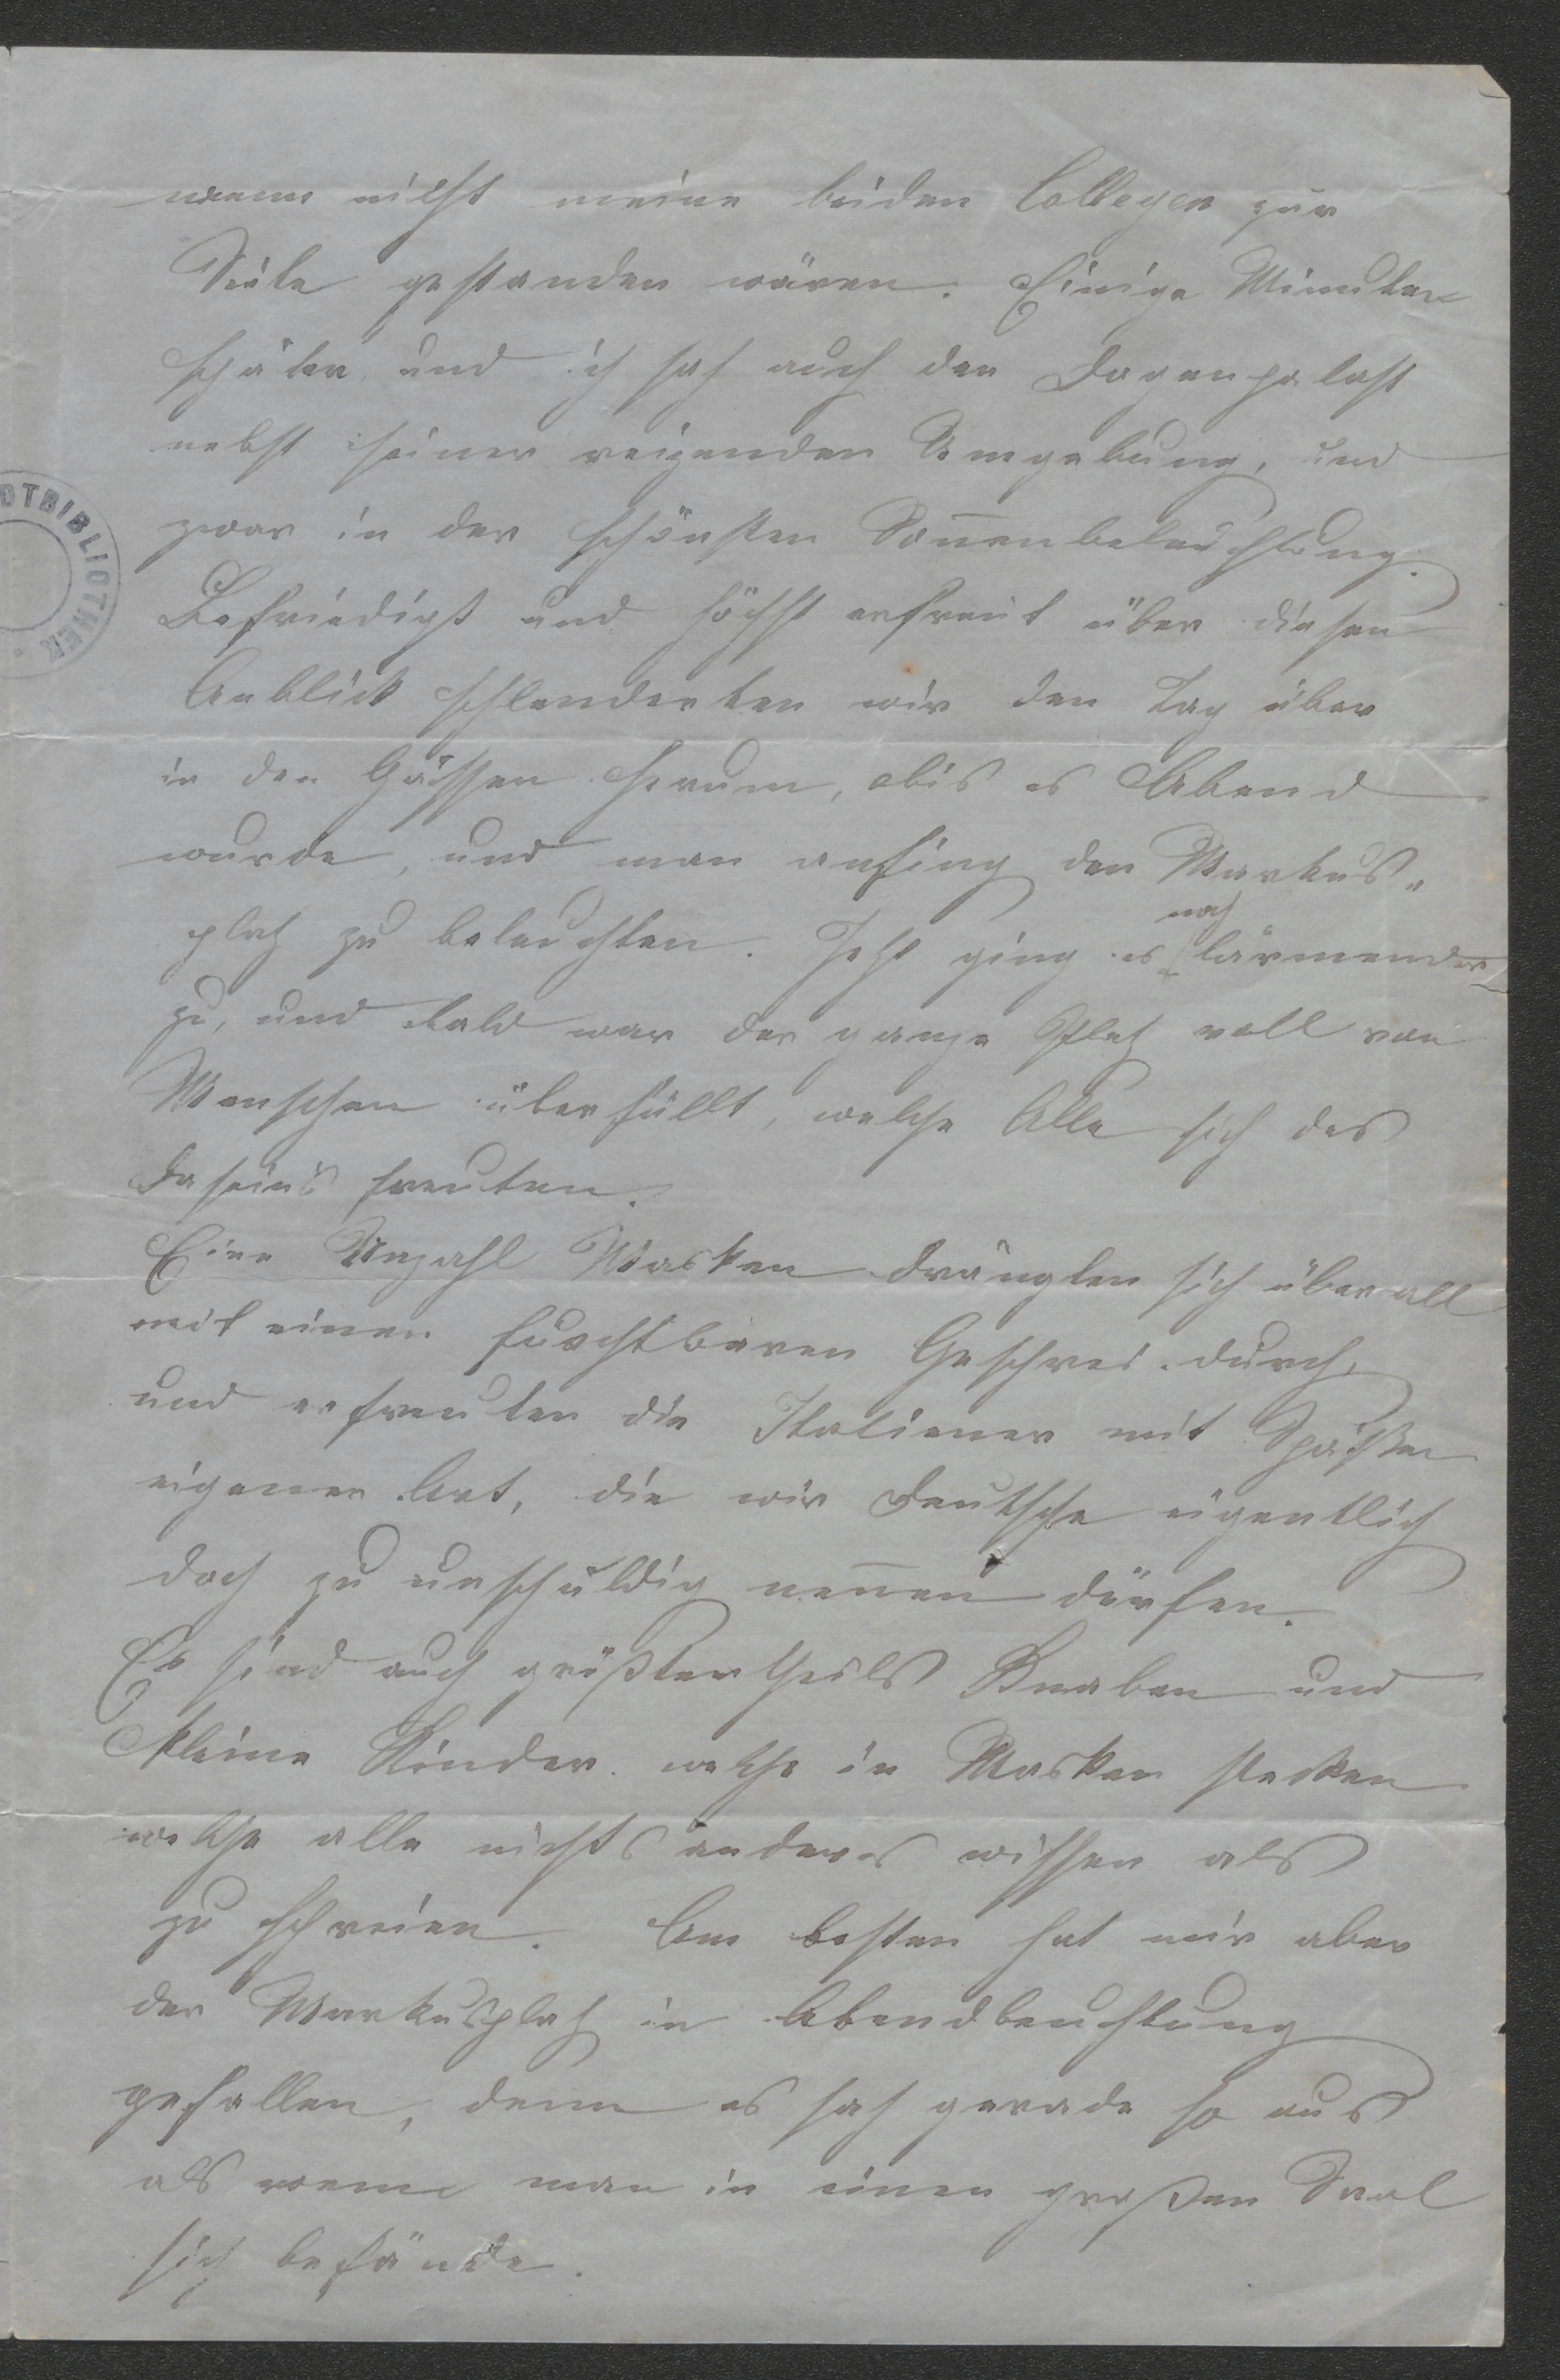 wenn nicht meine beiden Collegen zur
Seite gestanden wären. Einige Minuten
später, und ich sah auch den Dogenpalast
nebst seiner reizenden Umgebung, und
zwar in der schönsten Sonnenbeleuchtung.
DTBIBLIOTHEK
Befriedigt und höchst erfreut über diesen
Anblick schlenderten wir den Tag über
in den Gassen herum, bis es Abend
wurde, und man anfing den Markus-
platz zu beleuchten. Jetzt ging es noch lärmender
zu, und bald war der ganze Platz voll von
Menschen überfüllt, welche Alle sich des
Daseins freuten.
Eine Unzahl Masken drängten sich überall
mit einen furchtbaren Geschrei durch,
und erfreuten die Italiener mit Späßen
eigener Art, die wir Deutsche eigentlich
doch zu unschuldig nennen dürfen.
Es sind auch größtentheils Knaben und
kleine Kinder welche in Masken stecken
welche alle nichts anderes wissen als
zu schreien. Am besten hat mir aber
der Markusplatz in Abendbeuchtung
gefallen, denn es sah gerade so aus
als wenn man in einen großen Saal
sich befände.